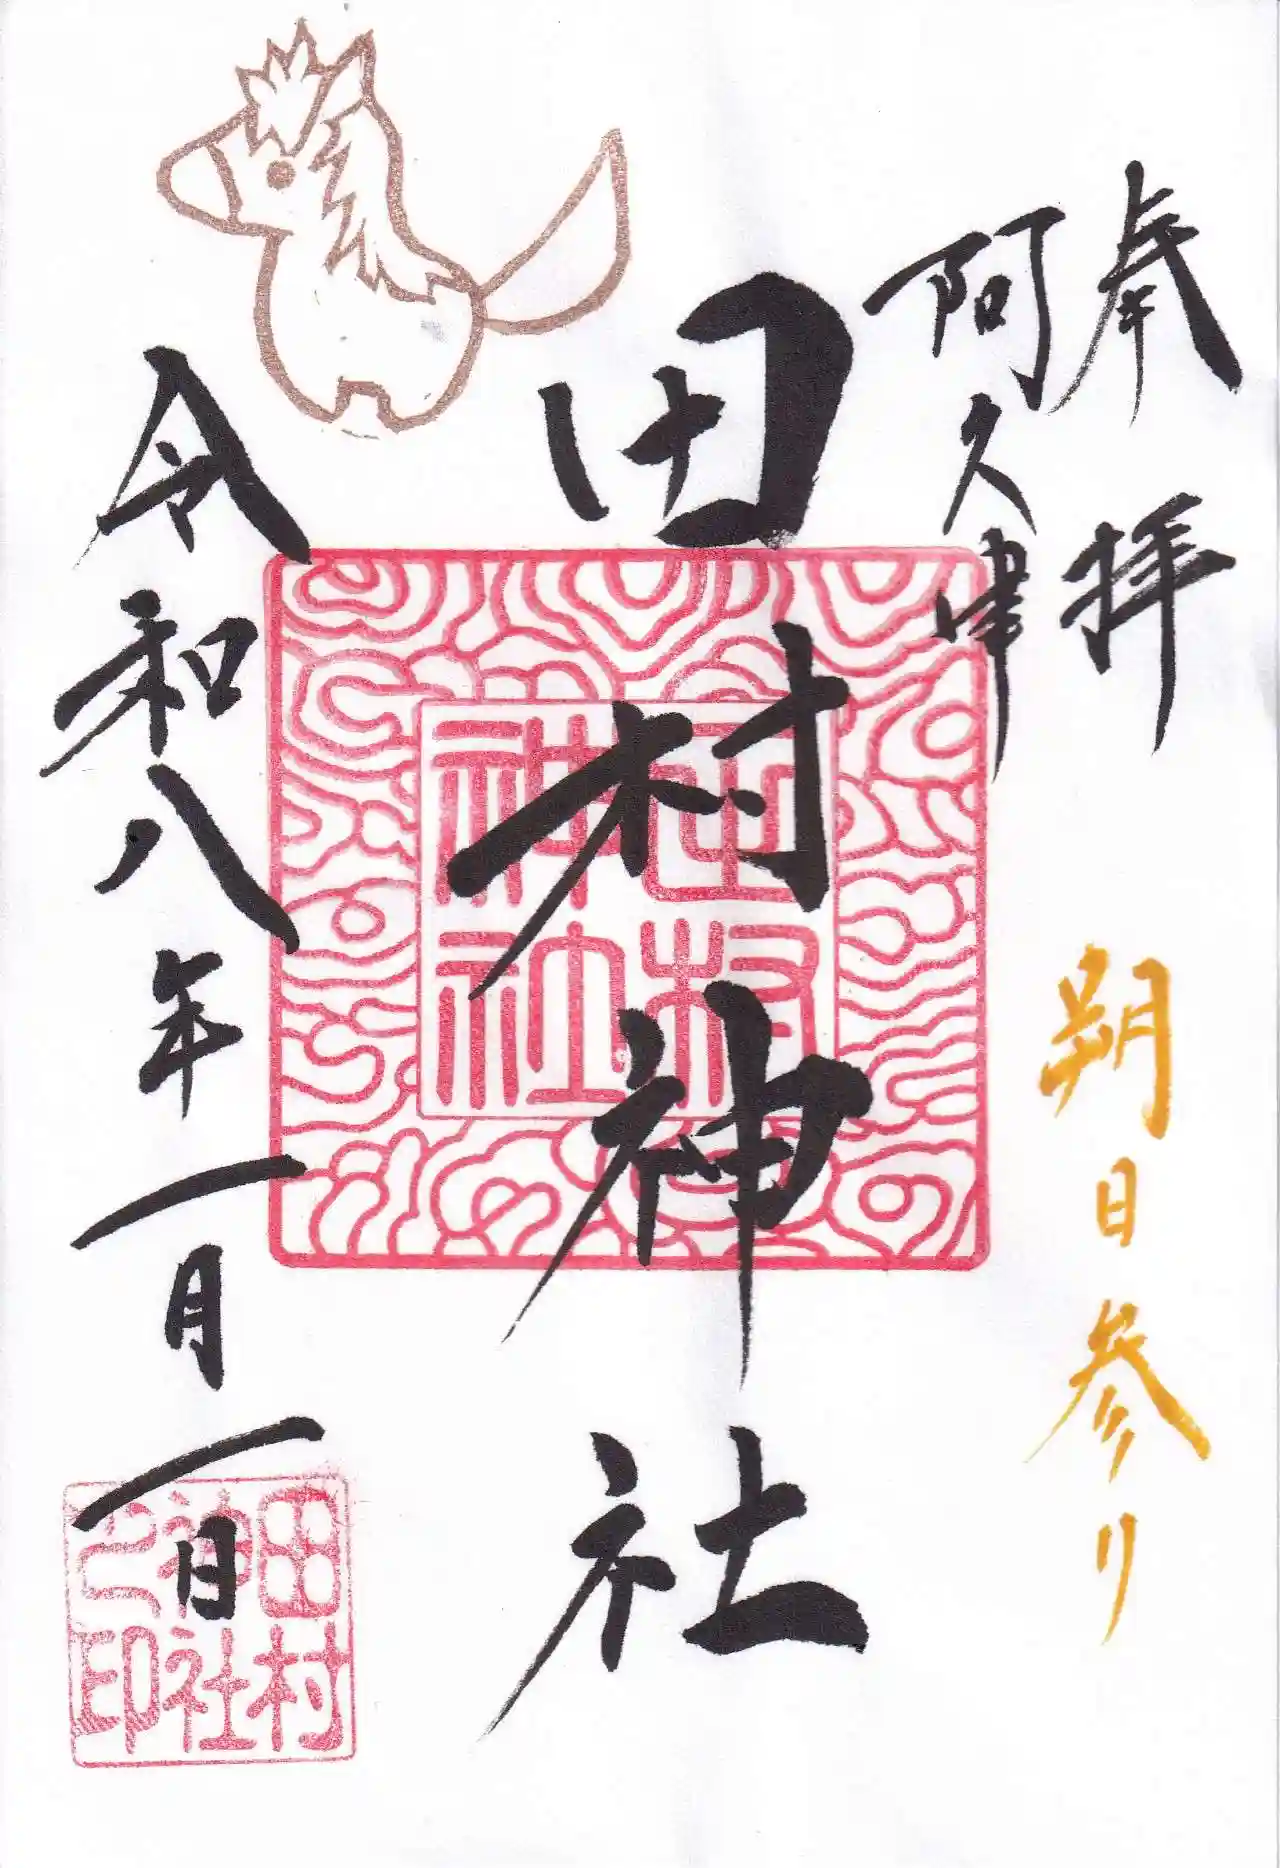 奉拝
朔日参り
阿久津
田村神社
田村神社
令和八年一月一日
田村神社之印